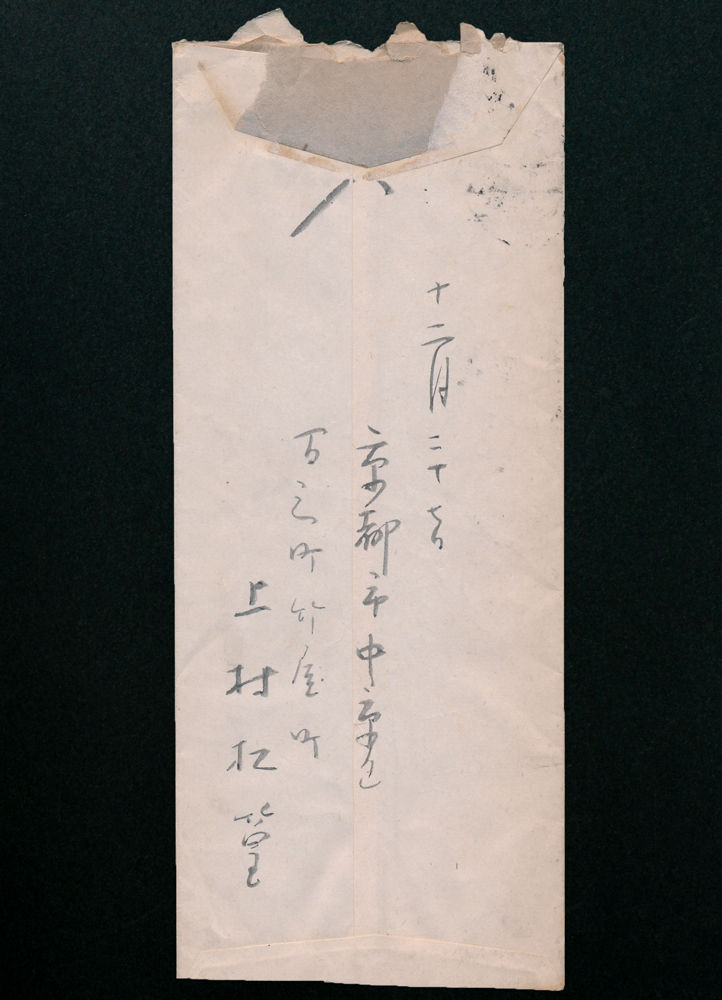 十二月二十七日
京都市中京区
間之町竹屋町
上村松篁